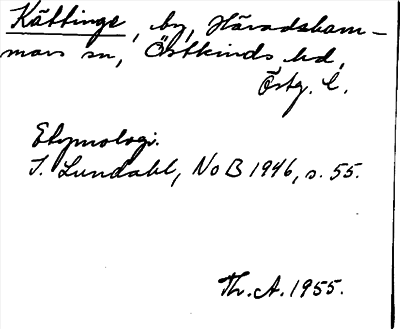 Kättinge, by, Häradsham-
mars sn, Östkinds hd,
Östg. l.
Etymologi.
I. Lundahl, NoB 1946, s. 55.
Th. A. 1955.